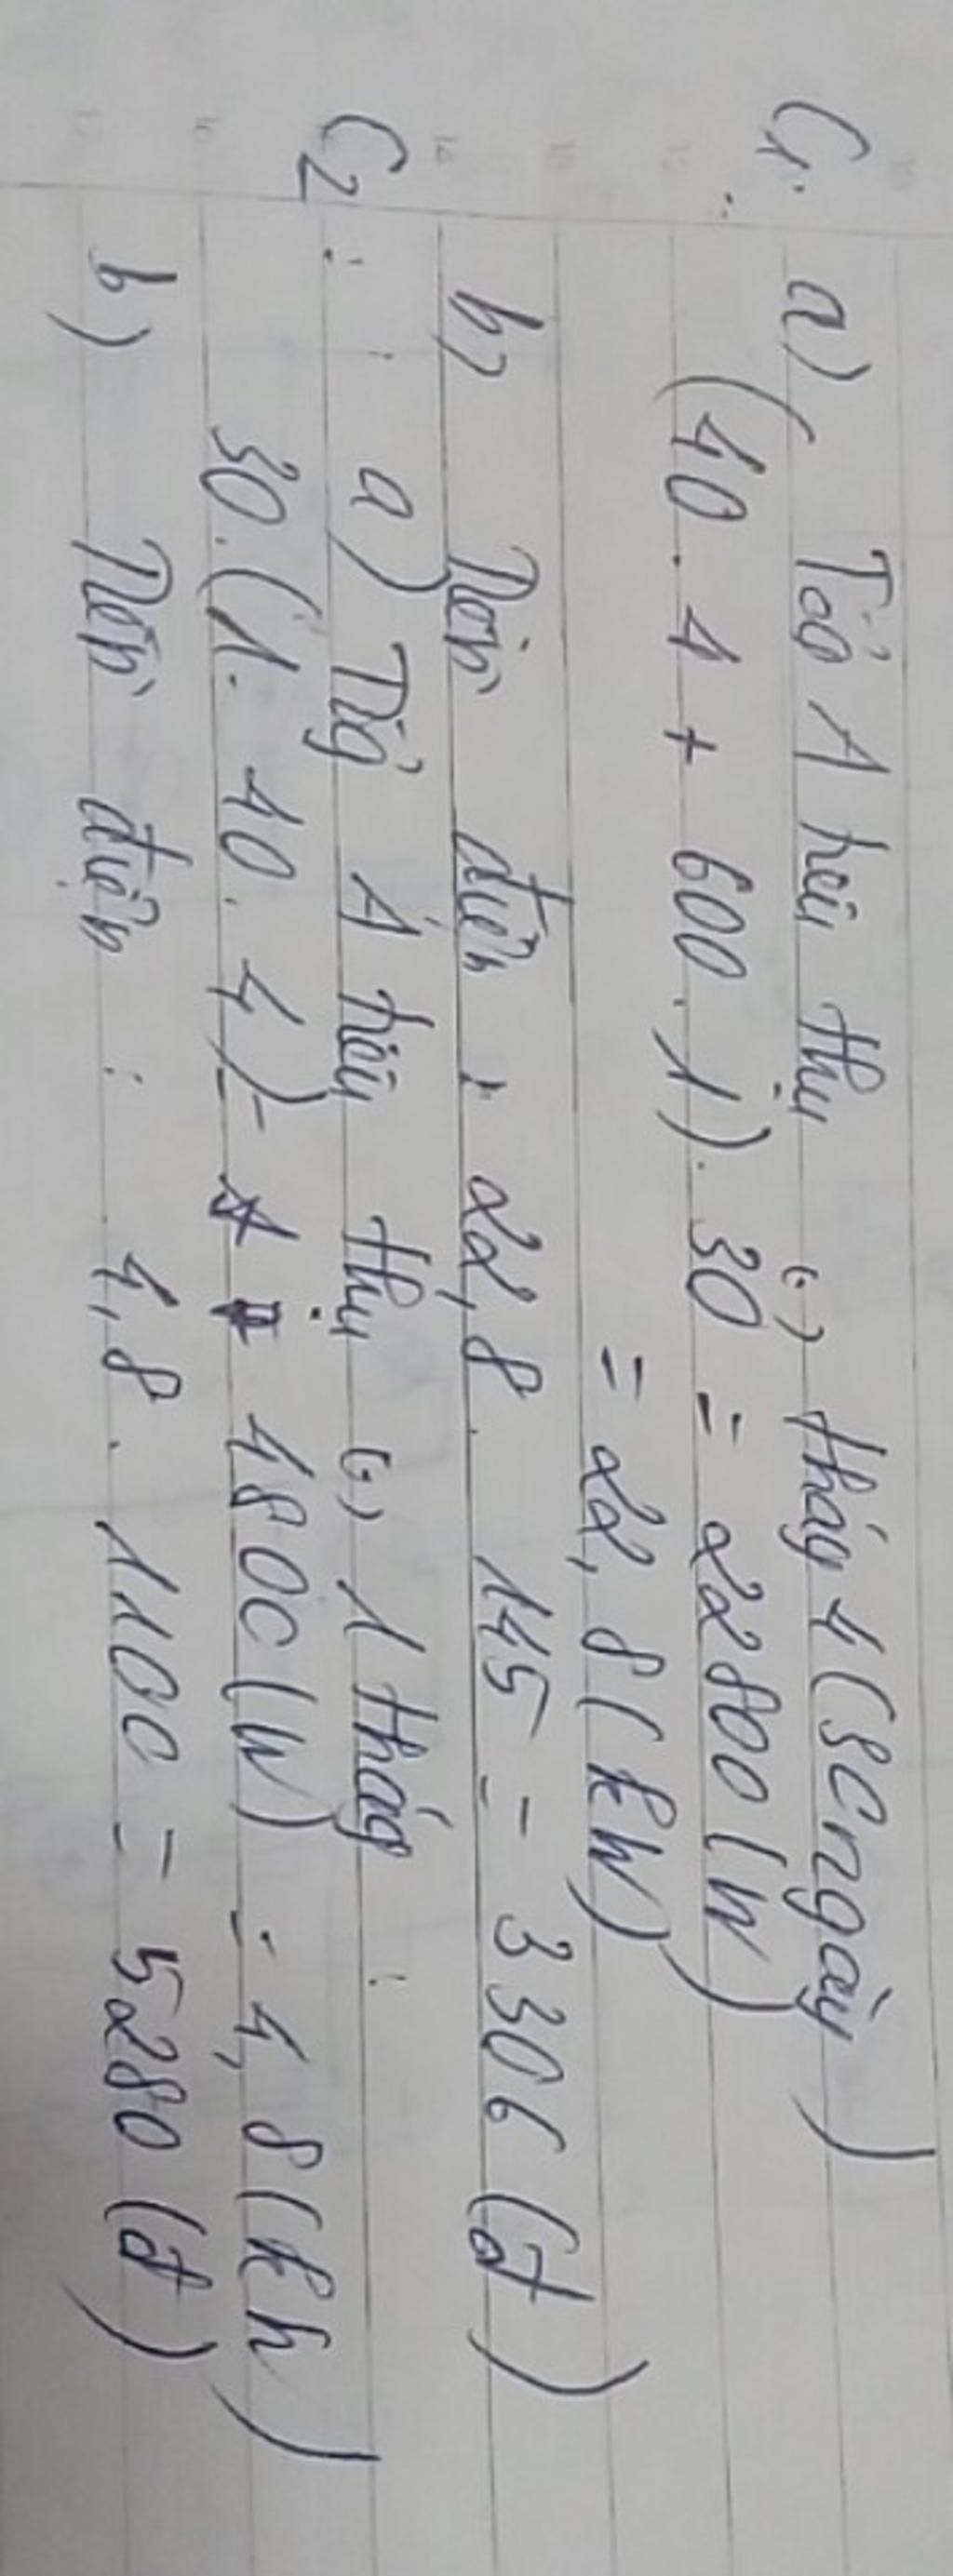 C1: a) Tổ A tiêu thụ (·) tháng 4 (30 ngày)
(40 . 4 + 600 . 1) . 30 = 22800 (W)
= 22,8 (kW)
b) Tiền điện : 22,8 . 145 = 3306 (đ)
C2 : a) Tổ A tiêu thụ (·) 1 tháng :
30 . (1 . 40 . 4) = 4800 (W) = 4,8 (kh)
b) Tiền điện : 4,8 . 1100 = 5280 (đ)